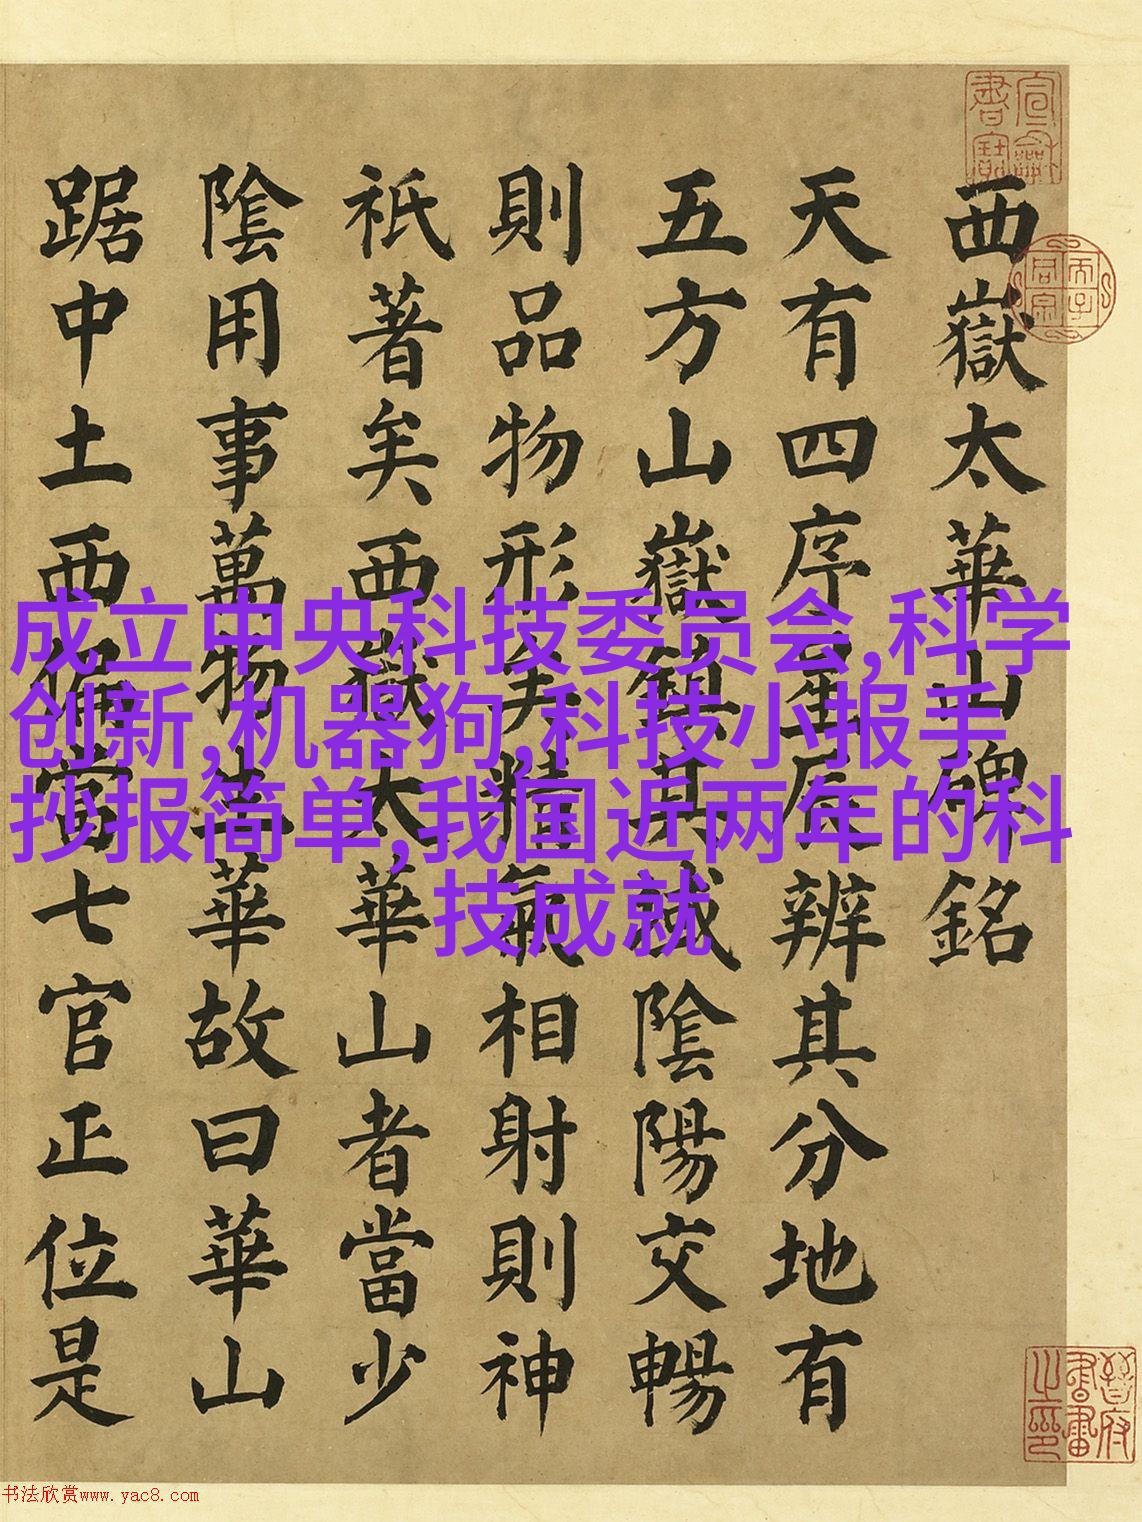 西嶽太華山碑銘
天有四序星辰辨其分地有
五方山嶽鎮其域陰陽交暢
則品物形矣精氣相射則神
祇著矣西嶽太華山者當少
陰用事萬物生華故曰華山
踞中土西偏當七官正位是
成立中央科技委员会,科学
创新,机器狗,科技小报手
抄报简单,我国近两年的科
技成就
晉府
書畫
之印
书法欣赏www.yac8.com